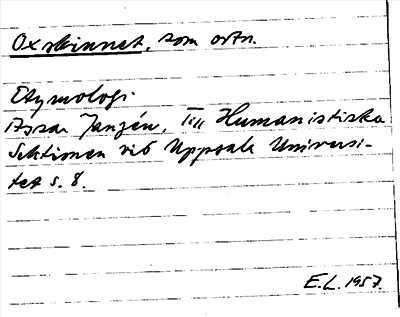 Oxskinnet, som ortn.
Etymologi
Assar Janzén, Till Humanistiska
Sektionen vid Uppsala Universi-
tet s. 8.
E.L. 1957.